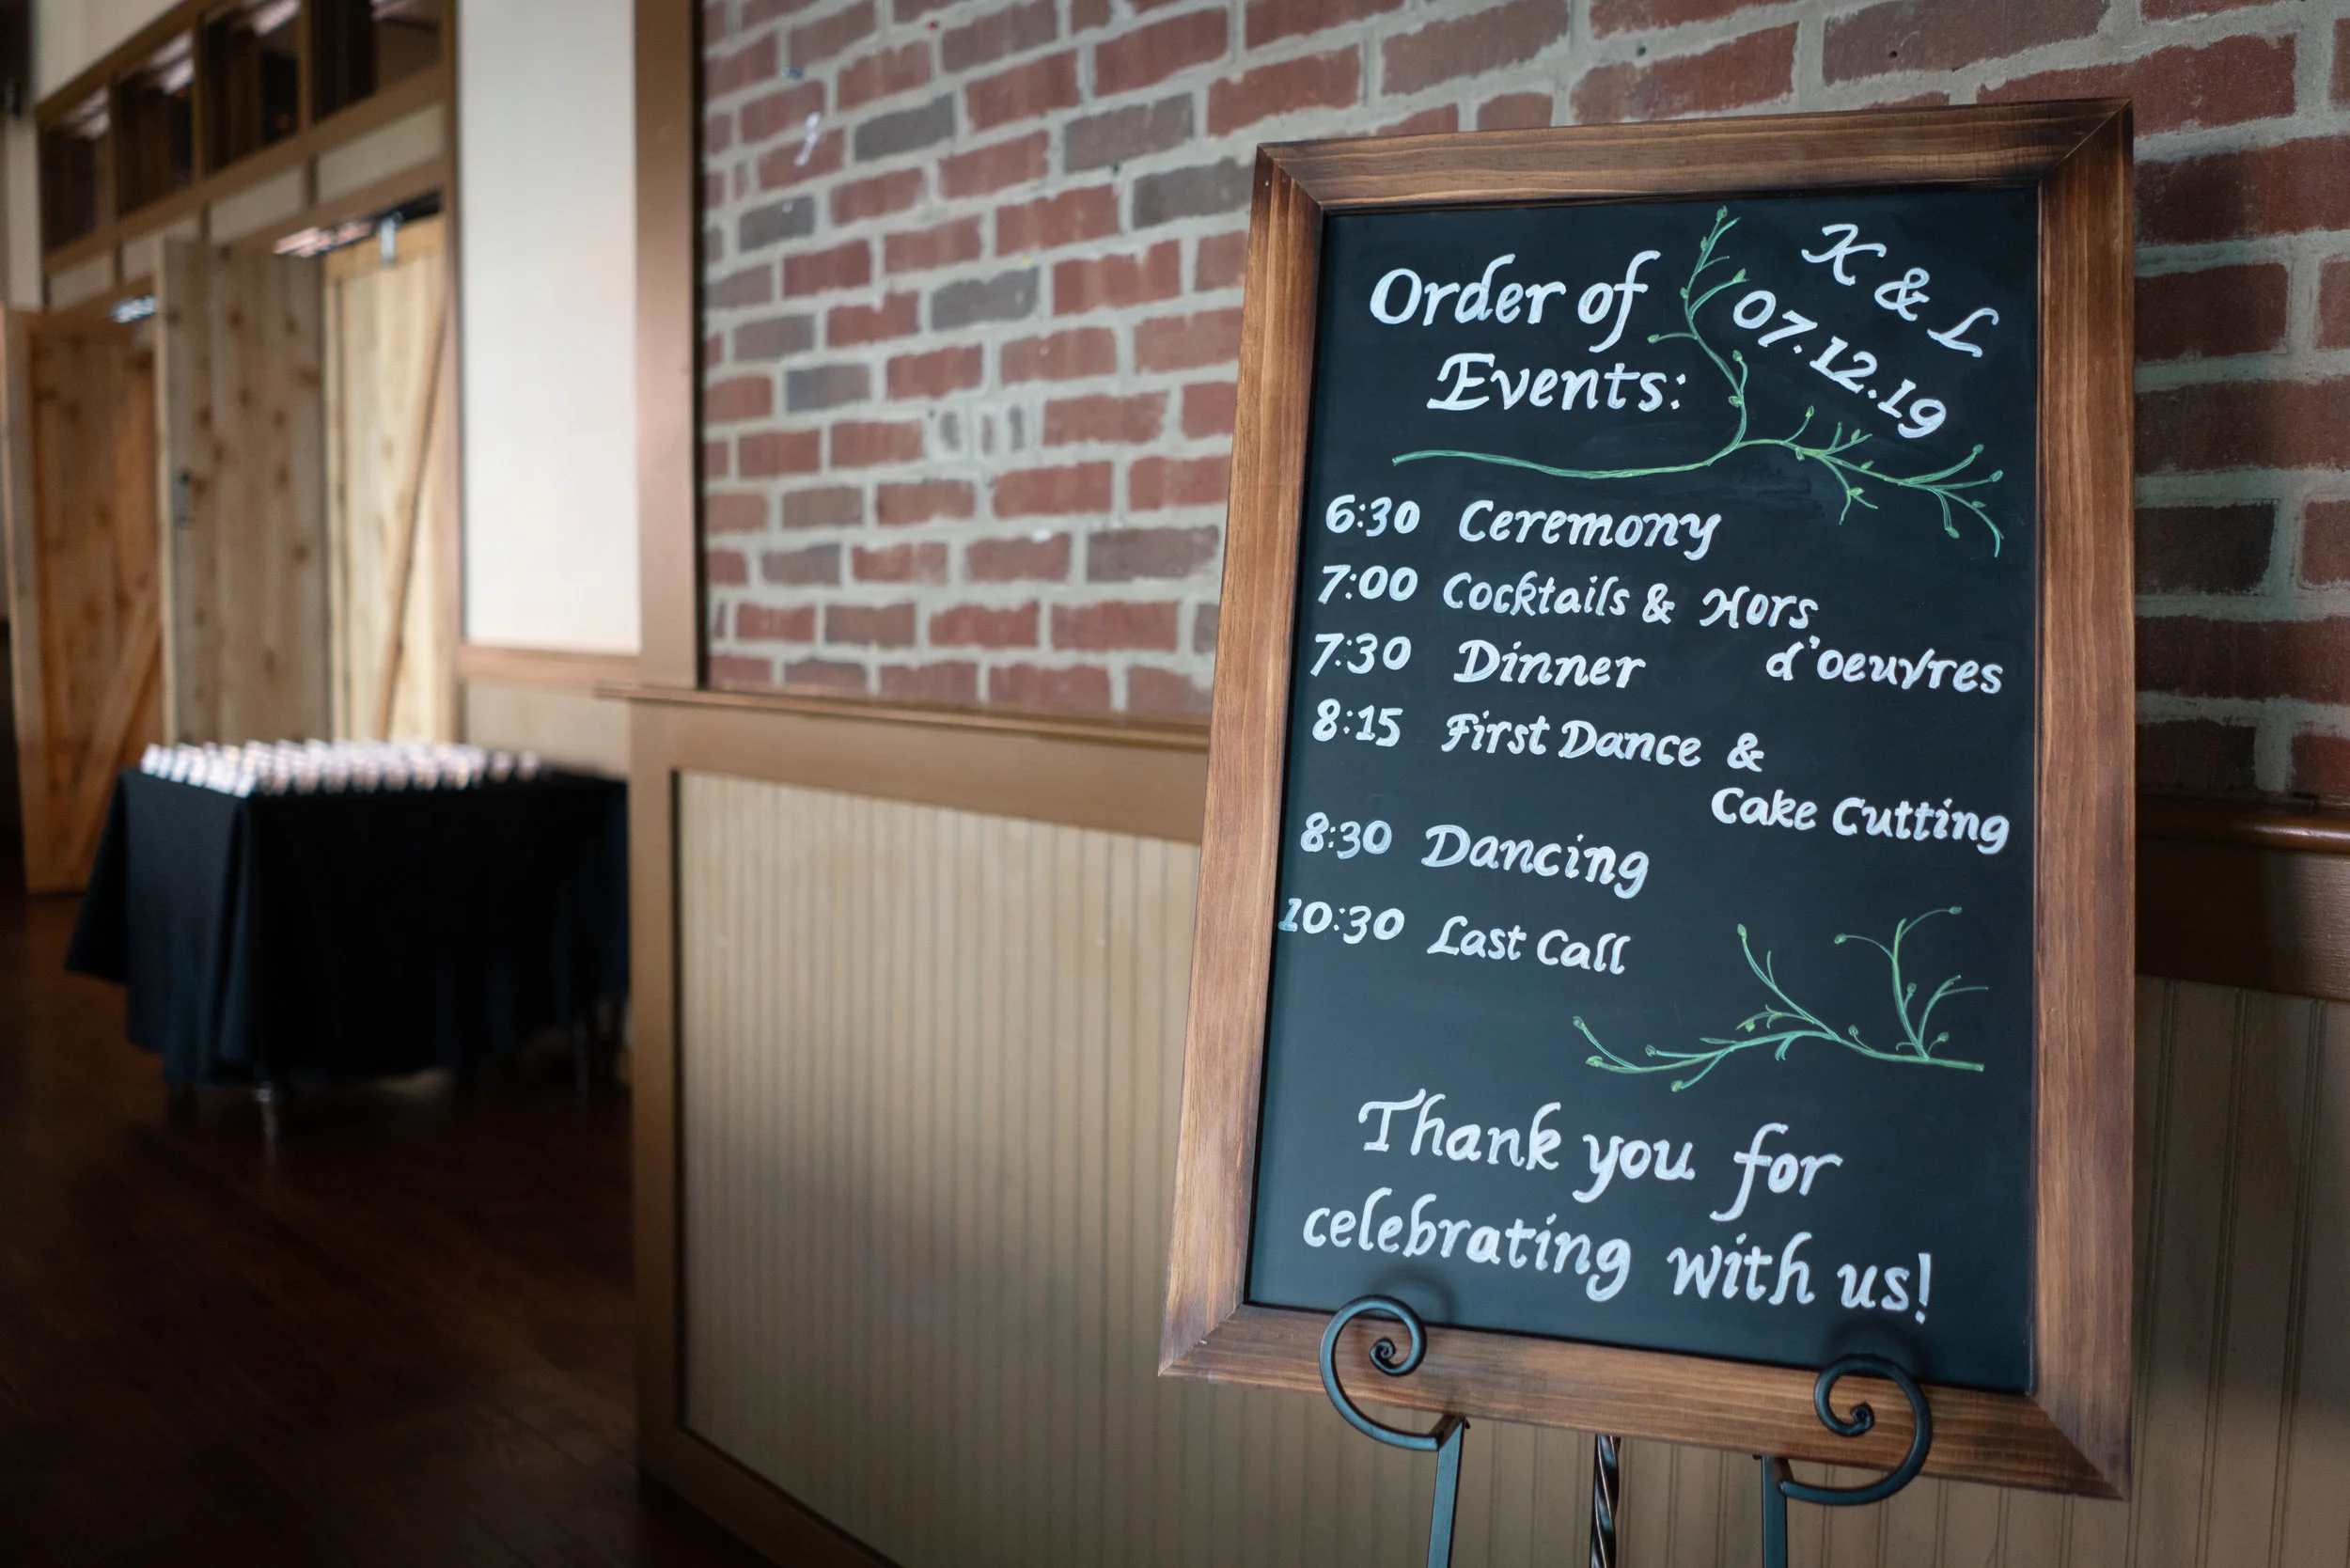 Order of
Events:
K & L
07.12.19
6:30 Ceremony
7:00 Cocktails & Hors
d'oeuvres
7:30 Dinner
8:15 First Dance &
Cake Cutting
8:30 Dancing
10:30 Last Call
Thank you for
celebrating with us!